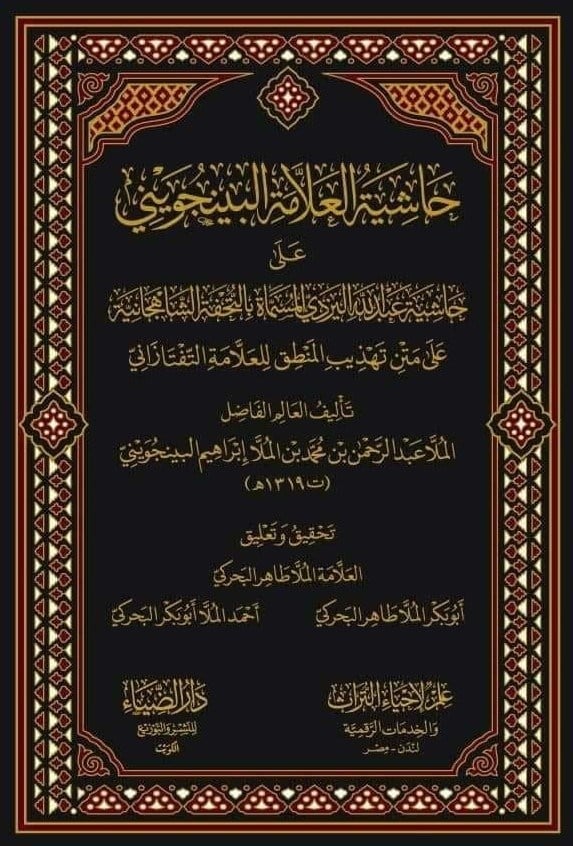 حَاشِيَةُ العَلَّامَةِ البَينجُوَيْنِي
عَلَى
حَاشِيَةِ عَبْدِ اللهِ اليَزْدِي المُسَمَّاةِ بِالتُّحْفَةِ الشَّاهجَانِيَّةِ
عَلَى مَتْنِ تَهْذِيبِ المَنْطِقِ لِلعَلَّامَةِ التَّفْتَازَانِيّ
تَأْلِيفُ العَالِمِ الفَاضِلِ
المُلَّا عَبْدِ الرَّحْمٰنِ بْنِ مُحَمَّدِ بْنِ المُلَّا إِبْرَاهِيم البينجُوَيْنِيّ
(ت ١٣١٩ هـ)
تَحْقِيقُ وَتَعْلِيق
العَلَّامَةُ المُلَّا طَاهِر البَحرَكِيّ
أَبُو بَكْر المُلَّا طَاهِر البَحرَكِيّ
أَحْمَد المُلَّا أَبُو بَكْر البَحرَكِيّ
عِلْمٌ لِإِحْيَاءِ التُّرَاثِ
وَالخِدمَات الرَّقمِيَّة
لَنْدَن - مِصْر
دَارُ الضِّيَاءِ
لِلنَّشْرِ وَالتَّوْزِيع
الكُوَيْت